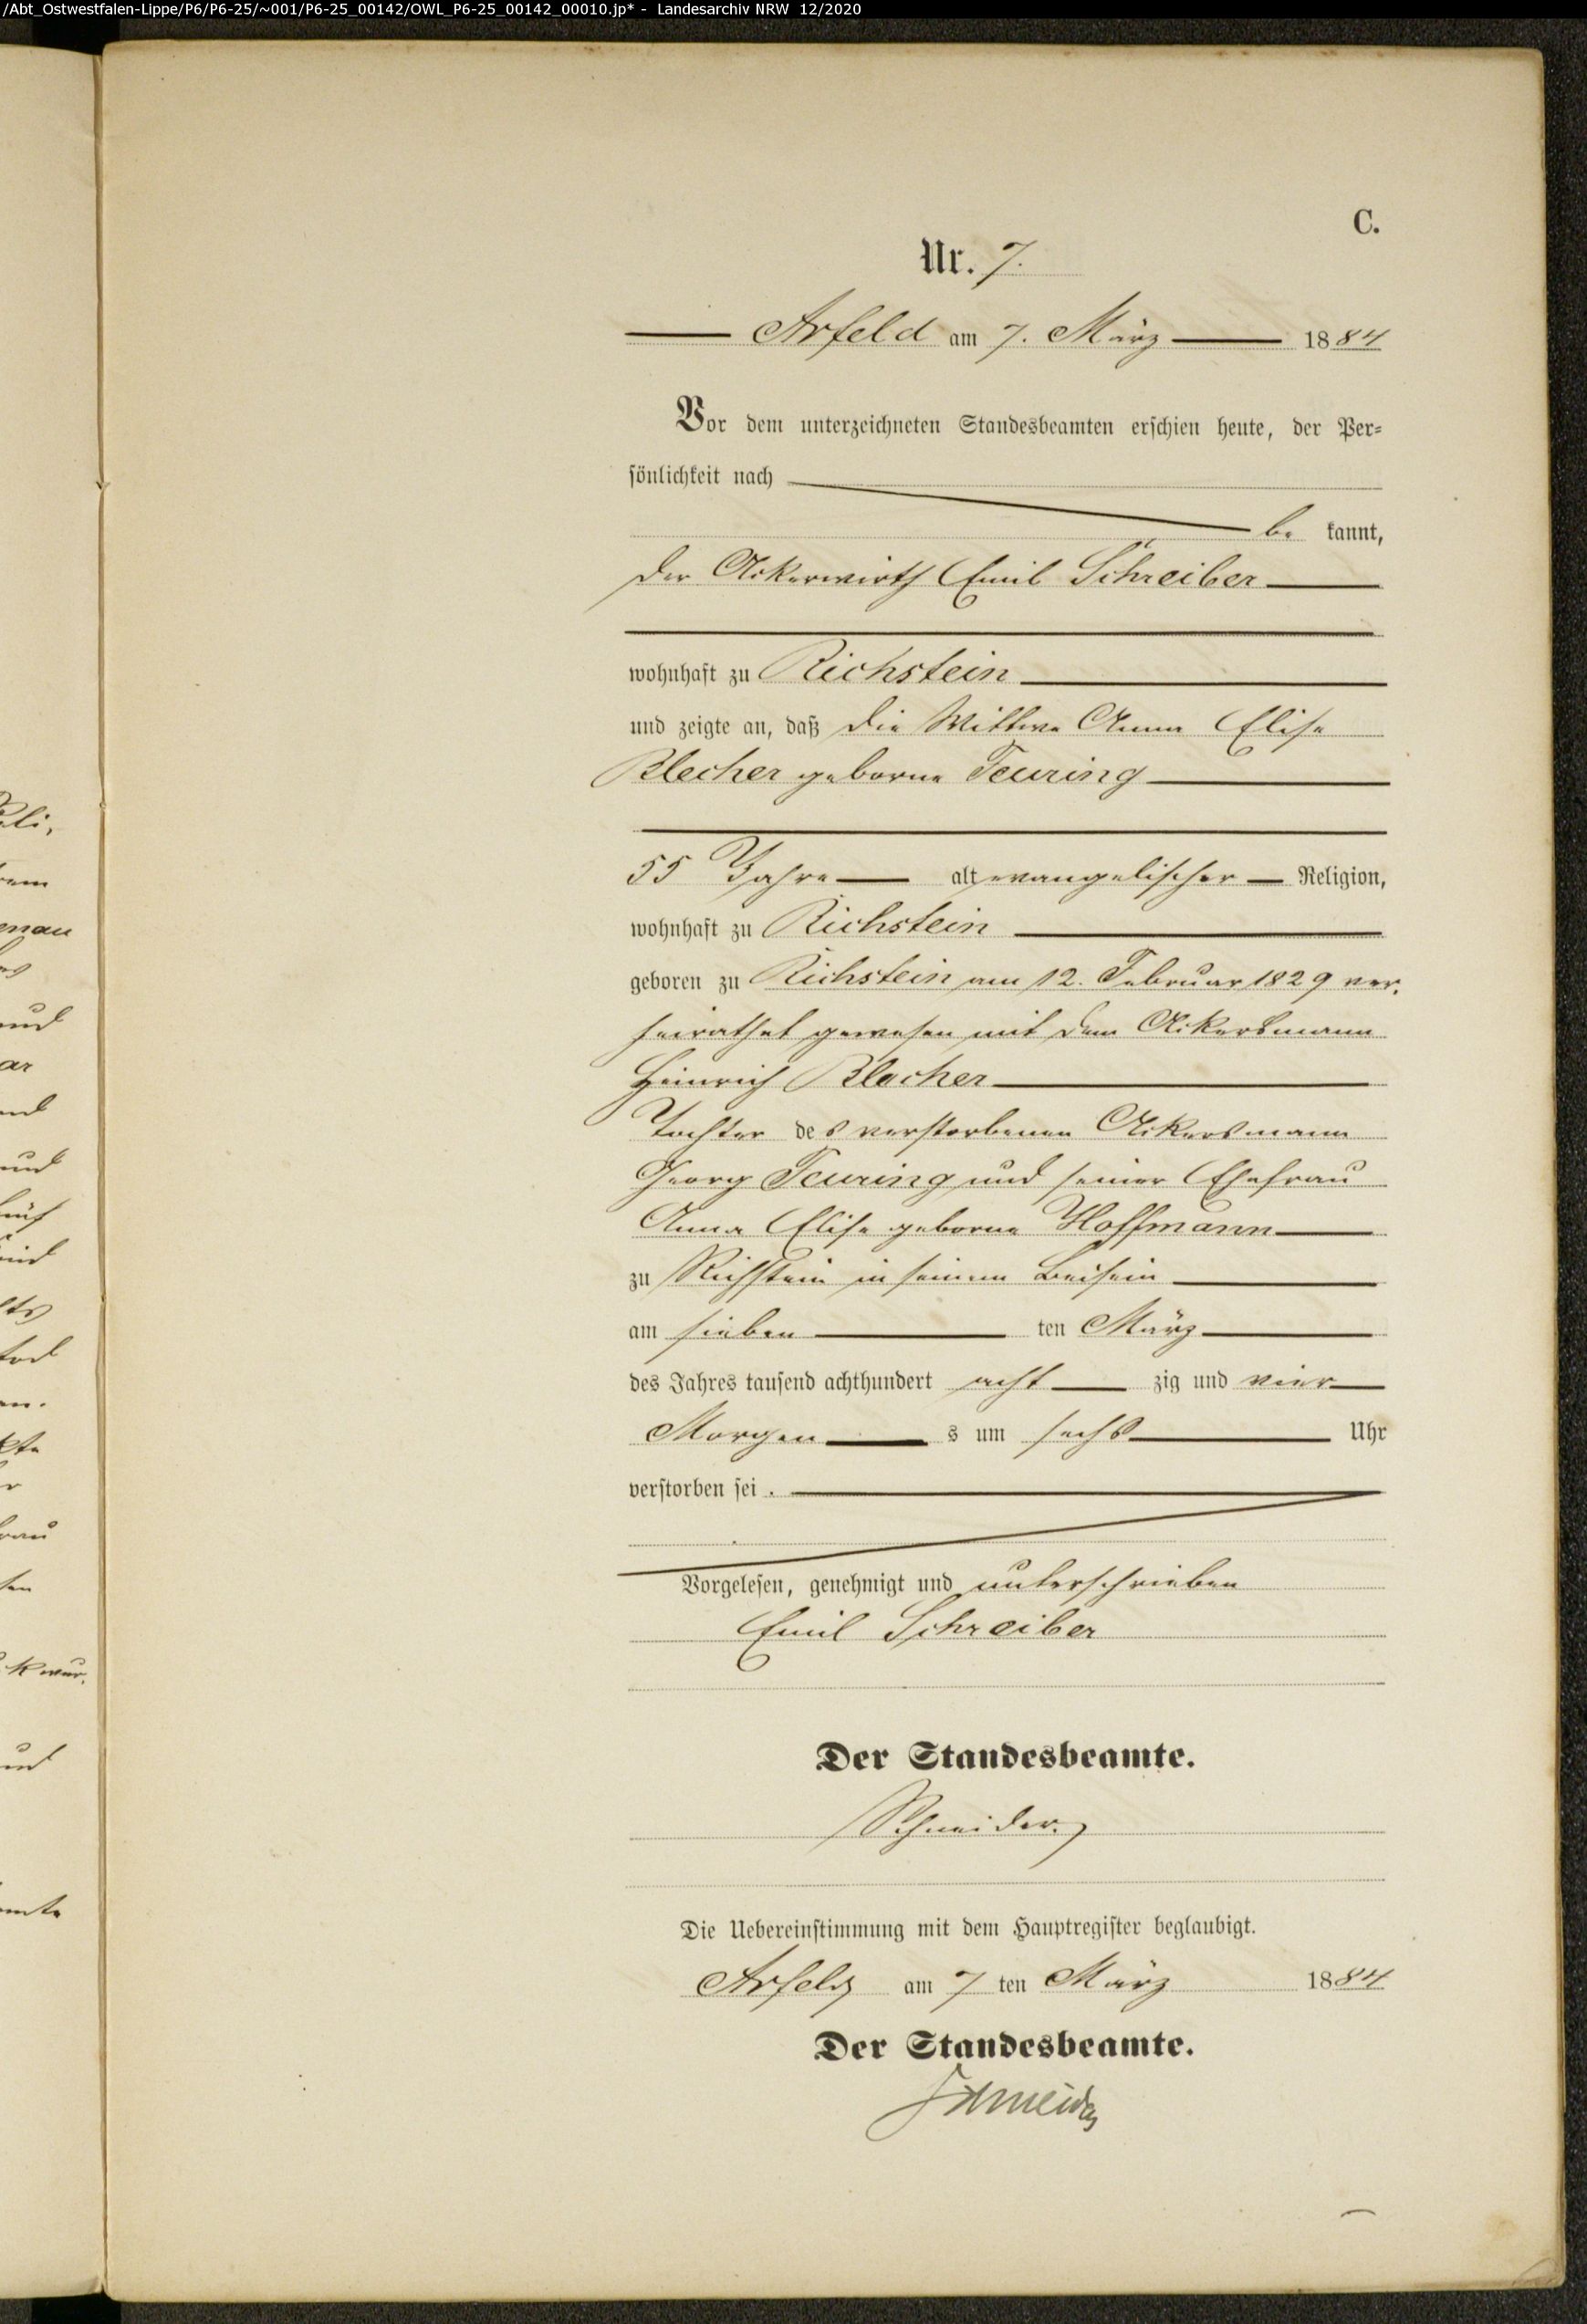 /Abt_Ostwestfalen-Lippe/P6/P6-25/~001/P6-25_00142/OWL_P6-25_00142_00010.jp* - Landesarchiv NRW 12/2020
C.
Nr. 7.
Arfeld am 7. März 1884
Vor dem unterzeichneten Standesbeamten erschien heute, der Per-
sönlichkeit nach
be kannt,
der Ackerwirth Emil Schreiber
wohnhaft zu Richstein
und zeigte an, daß die Wittwe Anna Elise
Blecher geborne Teuring
55 Jahre alt evangelischer Religion,
wohnhaft zu Richstein
geboren zu Richstein am 12. Februar 1829 ver-
heirathet gewesen mit dem Ackersmann
Heinrich Blecher
Tochter des verstorbenen Ackersmann
Georg Teuring und seiner Ehefrau
Anna Elise geborne Hoffmann
zu Richstein in seinem Beisein
am sieben ten März
des Jahres tausend achthundert acht zig und vier
Morgen s um sechs Uhr
verstorben sei.
Vorgelesen, genehmigt und unterschrieben
Emil Schreiber
Der Standesbeamte.
Schneider
Die Uebereinstimmung mit dem Hauptregister beglaubigt.
Arfeld am 7 ten März 1884
Der Standesbeamte.
Schneider